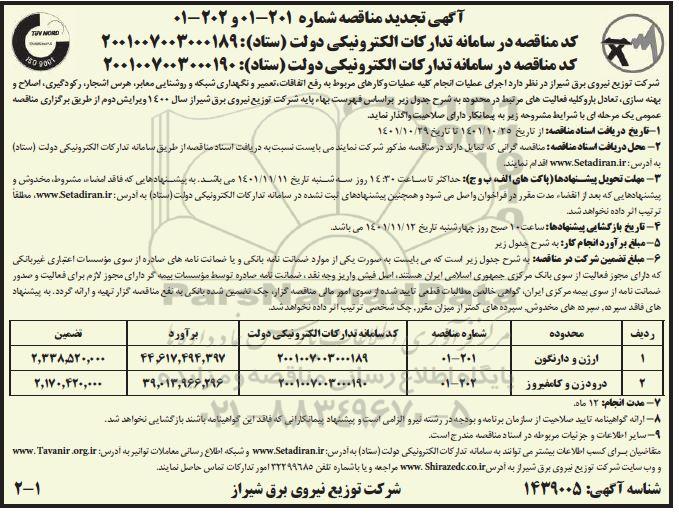 آگهی تجدید مناقصه شماره ۲۰۱-۰۱ و ۲۰۲-۰۱
کد مناقصه در سامانه تدارکات الکترونیکی دولت (ستاد): ۲۰۰۱۰۰۷۰۰۳۰۰۰۱۸۹
کد مناقصه در سامانه تدارکات الکترونیکی دولت (ستاد): ۲۰۰۱۰۰۷۰۰۳۰۰۰۱۹۰
TUV NORD
ISO 9001
شرکت توزیع نیروی برق شیراز در نظر دارد اجرای عملیات انجام کلیه عملیات و کارهای مربوط به رفع اتفاقات، تعمیر و نگهداری شبکه و روشنایی معابر، هرس اشجار، رکودگیری، اصلاح و
بهینه سازی، تعادل بار و کلیه فعالیت های مرتبط در محدوده به شرح جدول زیر براساس فهرست بهاء پایه شرکت توزیع نیروی برق شیراز سال ۱۴۰۰ ویرایش دوم از طریق برگزاری مناقصه
عمومی یک مرحله ای با شرایط مشروحه زیر به پیمانکار دارای صلاحیت واگذار نماید.
۱- تاریخ دریافت اسناد مناقصه: از تاریخ ۱۴۰۱/۱۰/۲۵ تا تاریخ ۱۴۰۱/۱۰/۲۹
۲- محل دریافت اسناد مناقصه: مناقصه گرانی که تمایل دارند در مناقصه مذکور شرکت نمایند می بایست نسبت به دریافت اسناد مناقصه از طریق سامانه تدارکات الکترونیکی دولت (ستاد)
به آدرس: www.Setadiran.ir اقدام نمایند.
۳- مهلت تحویل پیشنهادها (پاکت های الف، ب و ج): حداکثر تا ساعت ۱۴:۳۰ روز سه شنبه تاریخ ۱۴۰۱/۱۱/۱۱ می باشد. به پیشنهادهایی که فاقد امضاء، مشروط، مخدوش و
پیشنهادهایی که بعد از انقضاء مدت مقرر در فراخوان واصل می شود و همچنین پیشنهادهای ثبت نشده در سامانه تدارکات الکترونیکی دولت (ستاد) به آدرس: www.Setadiran.ir، مطلقاً
ترتیب اثر داده نخواهد شد.
۴- تاریخ بازگشایی پیشنهادها: ساعت ۱۰ صبح روز چهارشنبه تاریخ ۱۴۰۱/۱۱/۱۲ می باشد.
۵- مبلغ برآورد انجام کار: به شرح جدول زیر
۶- مبلغ تضمین شرکت در مناقصه: به شرح جدول زیر است که می بایست به صورت یکی از موارد ضمانت نامه بانکی و یا ضمانت نامه های صادره از سوی مؤسسات اعتباری غیربانکی
که دارای مجوز فعالیت از سوی بانک مرکزی جمهوری اسلامی ایران هستند، اصل فیش واریز وجه نقد، ضمانت نامه صادره توسط مؤسسات بیمه گر دارای مجوز لازم برای فعالیت و صدور
ضمانت نامه از سوی بیمه مرکزی ایران، گواهی خالص مطالبات قطعی تایید شده از سوی امور مالی مناقصه گزار، چک تضمین شده بانکی به نفع مناقصه گزار تهیه و ارائه گردد. به پیشنهاد
های فاقد سپرده، سپرده های مخدوش، سپرده های کمتر از میزان مقرر، چک شخصی ترتیب اثر داده نخواهد شد.
ردیف محدوده شماره مناقصه کد سامانه تدارکات الکترونیکی دولت برآورد تضمین
۱ ارژن و دارنگون ۲۰۱-۰۱ ۲۰۰۱۰۰۷۰۰۳۰۰۰۱۸۹ ۴۴,۶۱۷,۴۹۴,۳۹۷ ۲,۳۳۸,۵۲۰,۰۰۰
۲ درودزن و کامفیروز ۲۰۲-۰۱ ۲۰۰۱۰۰۷۰۰۳۰۰۰۱۹۰ ۳۹,۰۱۳,۹۶۶,۲۹۶ ۲,۱۷۰,۴۲۰,۰۰۰
۷- مدت انجام: ۱۲ ماه.
۸- ارائه گواهینامه تایید صلاحیت از سازمان برنامه و بودجه در رشته نیرو الزامی است و پیشنهاد پیمانکارانی که فاقد این گواهینامه باشند بازگشایی نخواهد شد.
۹- سایر اطلاعات و جزئیات مربوطه در اسناد مناقصه مندرج است.
متقاضیان برای کسب اطلاعات بیشتر می توانند به سامانه تدارکات الکترونیکی دولت (ستاد) به آدرس: www.Setadiran.ir و شبکه اطلاع رسانی معاملات توانیر به آدرس: www.Tavanir.org.ir
و وب سایت شرکت توزیع نیروی برق شیراز به آدرس www.Shirazedc.co.ir مراجعه و یا با شماره تلفن ۳۲۲۹۹۶۸۵ امور تدارکات تماس حاصل نمایند.
شناسه آگهی: ۱۴۳۹۰۰۵ شرکت توزیع نیروی برق شیراز ۱-۲